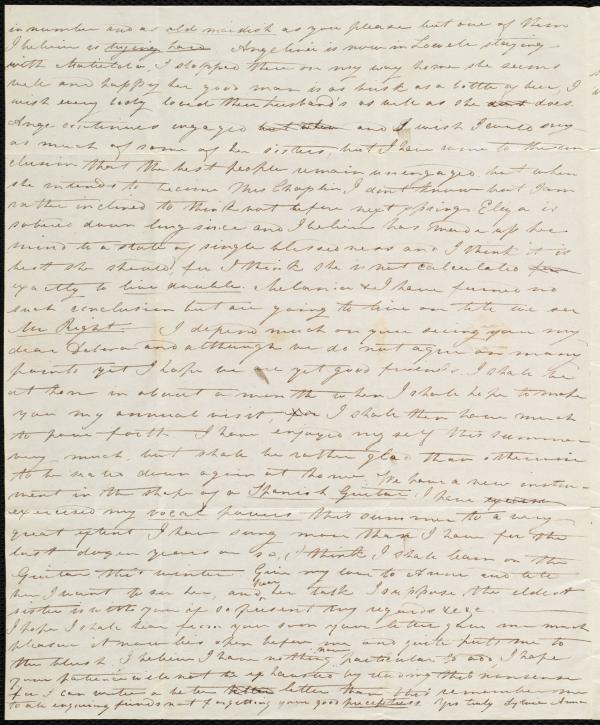 in number and as old maidish as you please but one of them
I believe is trying hard. Angeline is now in Lowell staying
with Matilda. I stopped there on my way home she seems
well and happy her good man is as brisk as a bottle of beer, I
wish every body loved their husband's as well as she does.
Ange continues engaged and I wish I could say
as much of some of her sisters, but I have come to the con
clusion that the best people remain unengaged. but when
she intends to become Mrs Chaplin I don't know but I am
rather inclined to think not before next spring. Eliza is
sobered down long since and I believe has made up her
mind to a state of single blessedness and I think it is
best she should, for I think she is not calculated for
exactly to live double. Melania & I have formed no
such conclusion but are going to live on till we see
Mr Right. I depend much on your seeing you my
dear Debora and although we do not agree on many
points yet I hope we are yet good friends. I shall be
at home in about a month when I shall hope to make
you my annual visit, I shall then have much
to pour forth I have enjoyed my self this summer
very much, but shall be rather glad than otherwise
to be seated down again at home. We have a new instru-
ment in the shape of a Spanish Guitar, I have
exercised my vocal powers this summer to a very
great extent I have sung more than I have for the
last dozen years or so, I think I shall learn on the
Guitar this winter. Give my love to Anne and tell
her I want to see her, and her task I suppose, the eldest
sister is with you if so present my regards &c &c
I hope I shall hear from you soon your letter gave me much
pleasure it now lies open before me and quite puts me to
the blush. I believe I have nothing more particular to add. I hope
your patience will not be exhausted by reading this nonsense
for I can write a better letter than this remember me
to all enquiring friends not forgetting your good Yrs truly